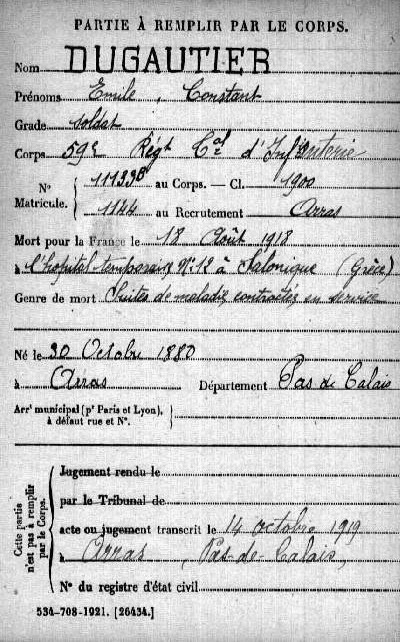 PARTIE À REMPLIR PAR LE CORPS.
Nom DUGAUTIER
Prénoms Emile, Constant
Grade soldat
Corps 59e Régt Cal d'Infanterie
N° Matricule. { 11339B au Corps. — Cl. 1900
1144 au Recrutement Arras
Mort pour la France le 18 Août 1918
à l'hopital temporaire N° 12 à Salonique (Grèce)
Genre de mort Suites de maladie contractée en service
Né le 30 Octobre 1880
à Arras Département Pas de Calais
Arrt municipal (pr Paris et Lyon), à défaut rue et N°.
Cette partie n'est pas à remplir par le Corps.
Jugement rendu le
par le Tribunal de
acte ou jugement transcrit le 14 octobre 1919
à Arras, Pas-de-Calais,
N° du registre d'état civil
534-708-1921. [26434.]